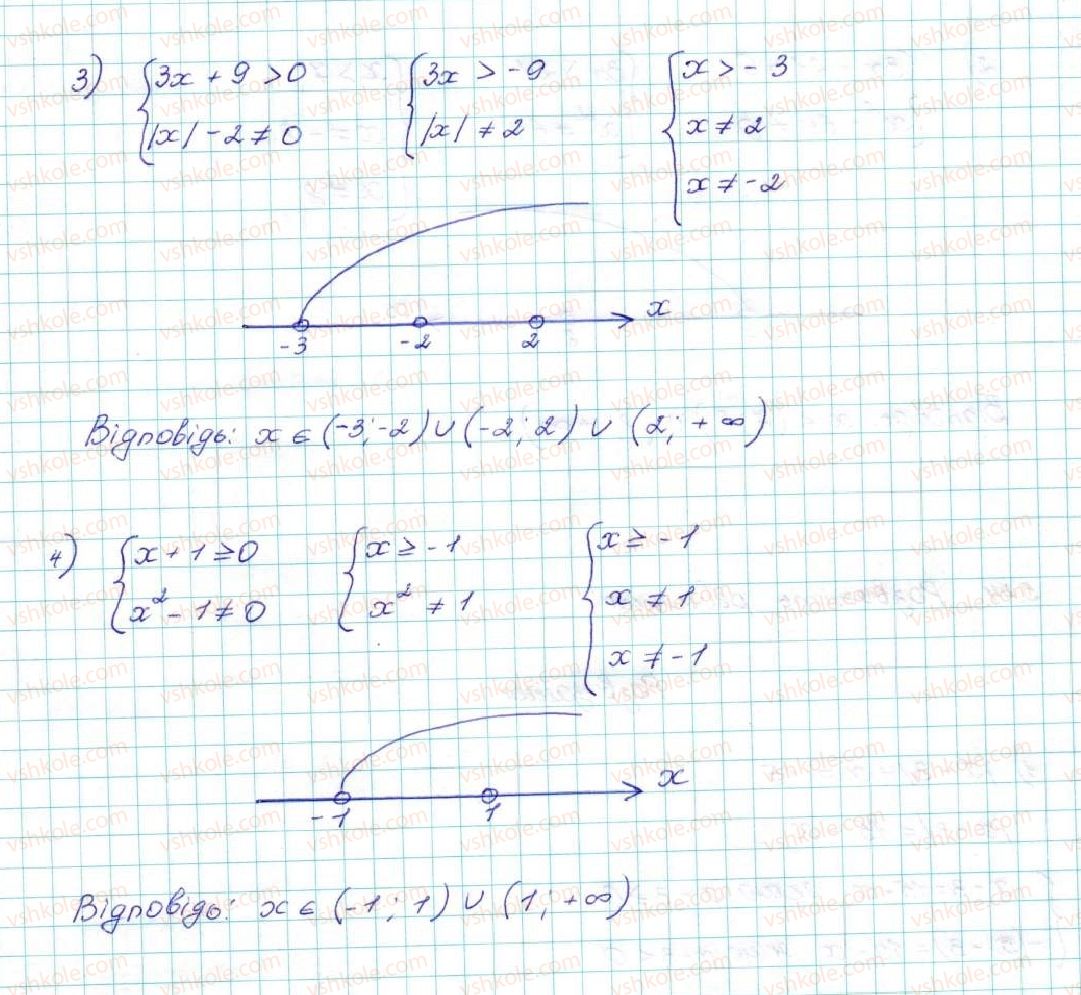 3) {3x + 9 > 0 {3x > -9 {x > -3
|x| - 2 ≠ 0 |x| ≠ 2 x ≠ 2
x ≠ -2
x
-3 -2 2
Відповідь: x ∈ (-3; -2) ∪ (-2; 2) ∪ (2; +∞)
4) {x + 1 ≥ 0 {x ≥ -1 {x ≥ -1
x² - 1 ≠ 0 x² ≠ 1 x ≠ 1
x ≠ -1
x
-1 1
Відповідь: x ∈ (-1; 1) ∪ (1; +∞)
vshkole.com